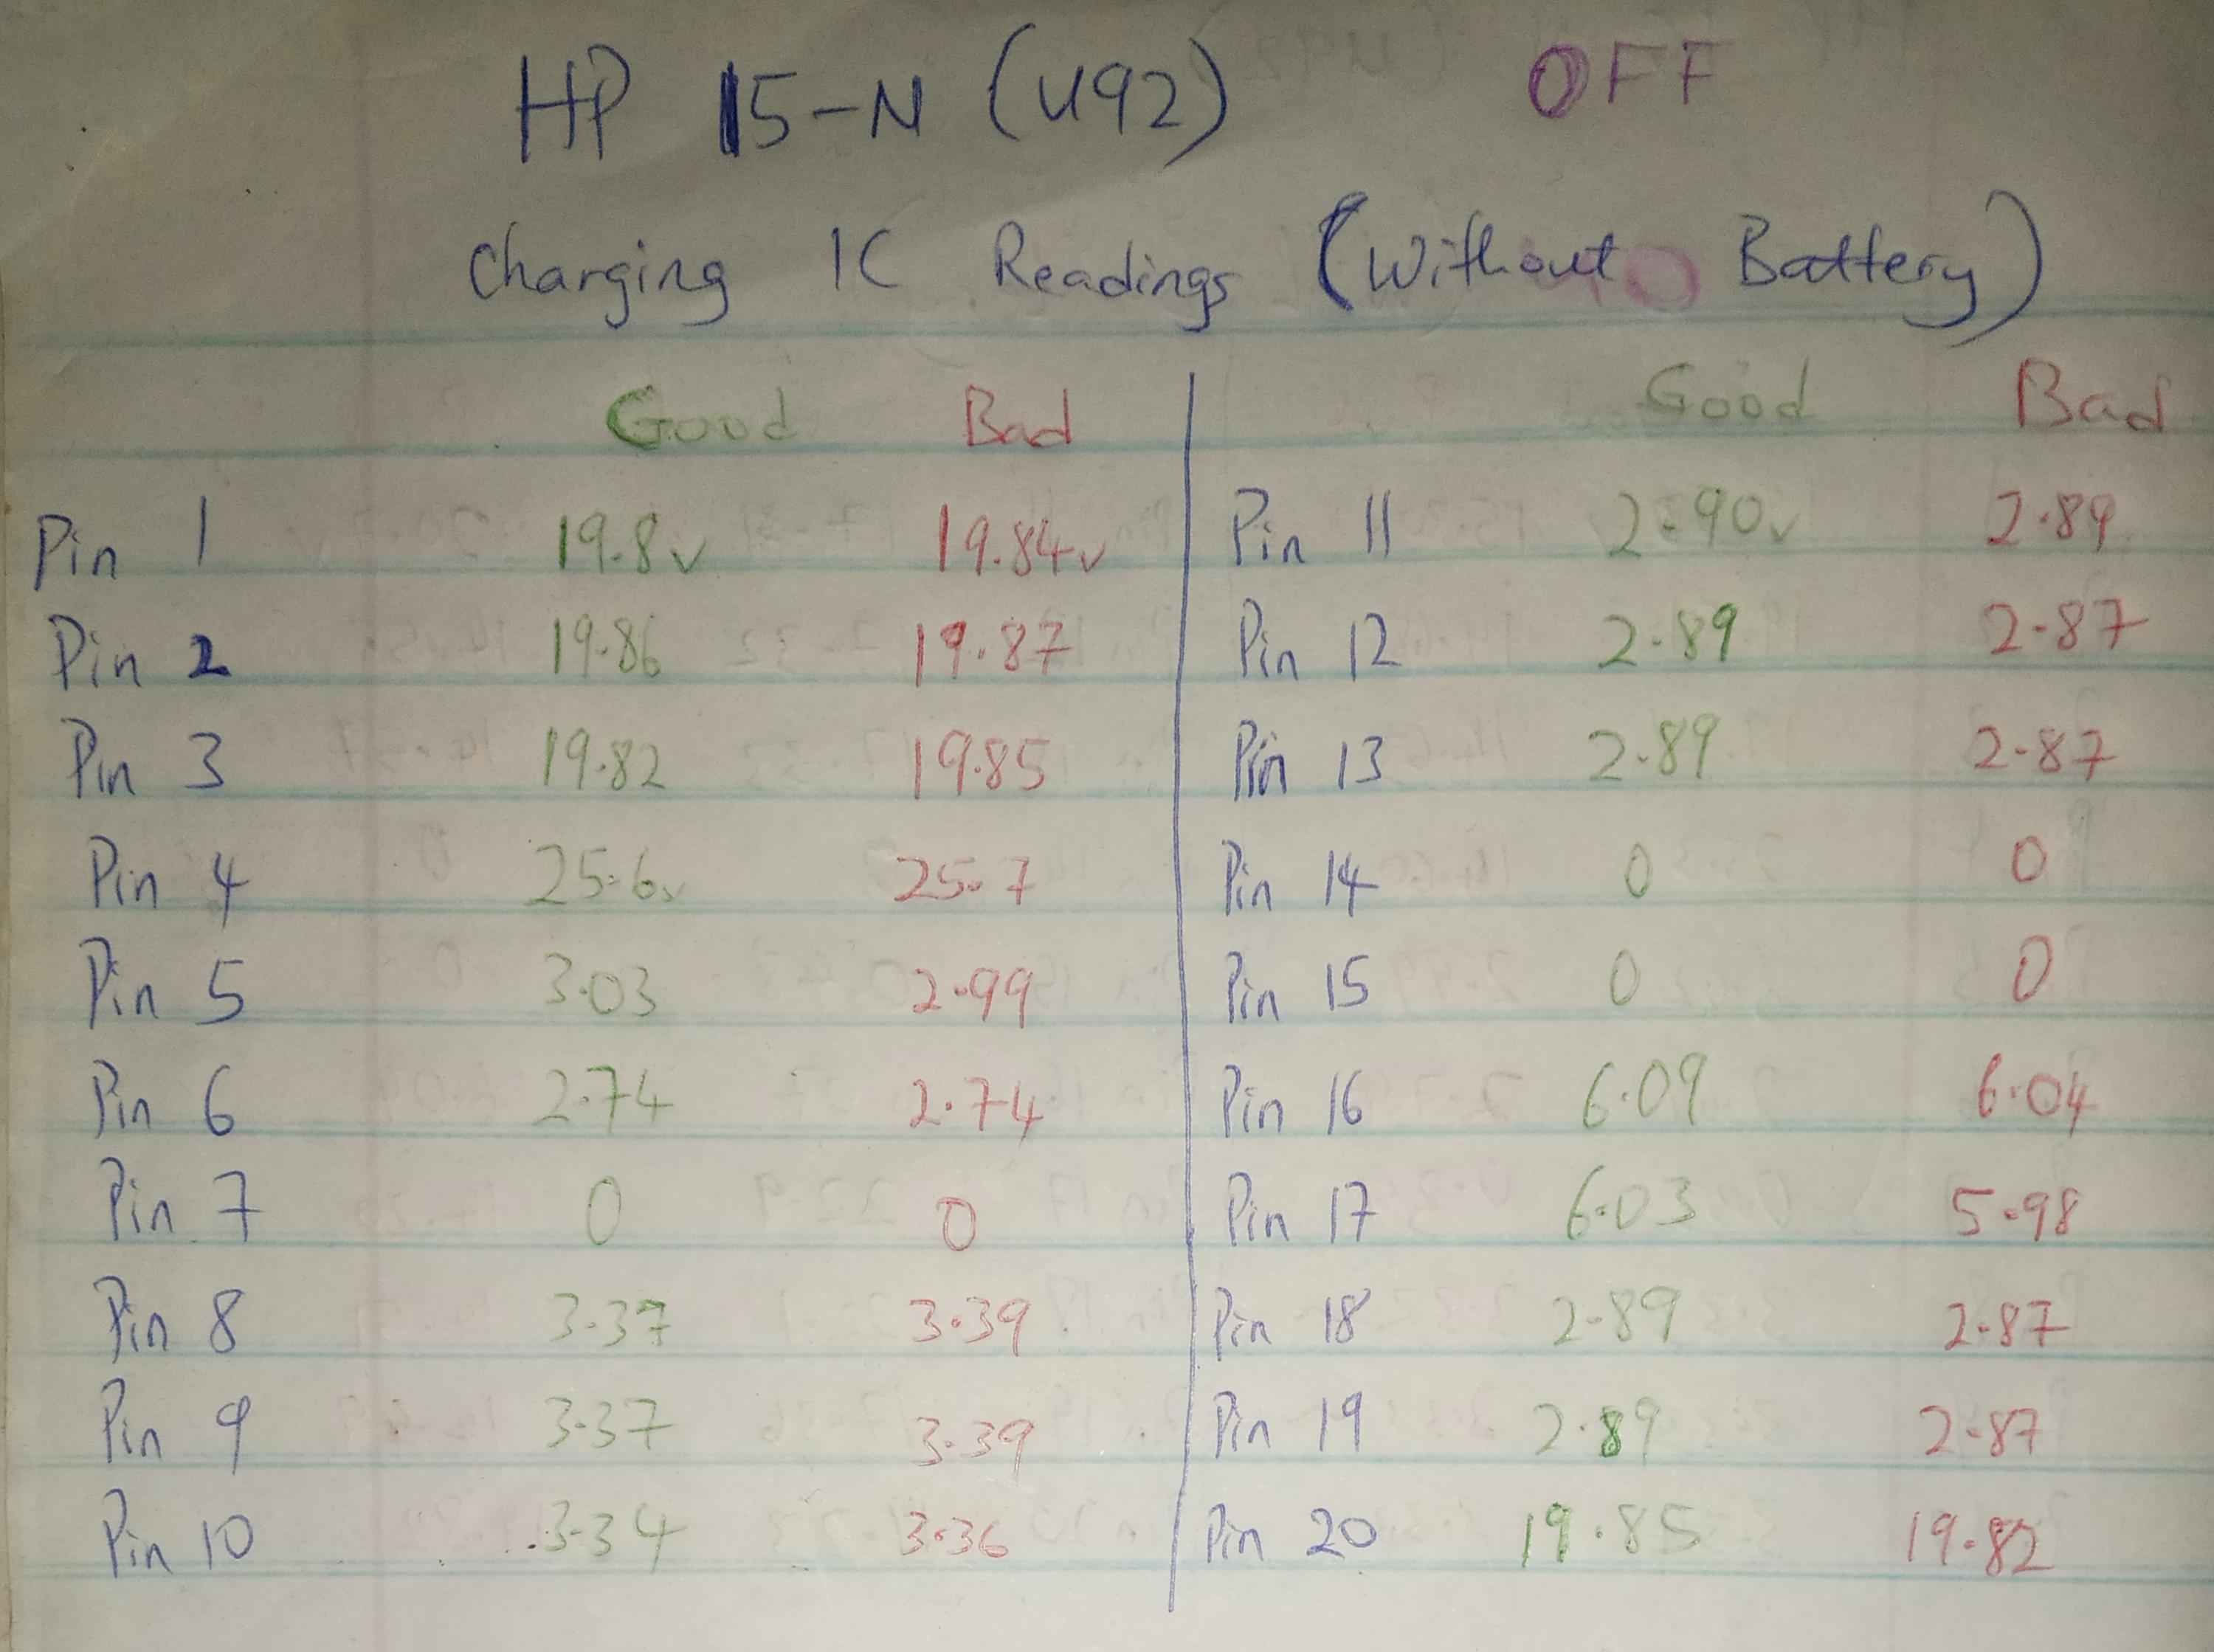 HP 15-N (U92) OFF
Charging IC Readings (Without Battery)
Good Bad Good Bad
Pin 1 19.8v 19.84v Pin 11 2.90v 2.89
Pin 2 19.86 19.87 Pin 12 2.89 2.87
Pin 3 19.82 19.85 Pin 13 2.89 2.87
Pin 4 25.6v 25.7 Pin 14 0 0
Pin 5 3.03 2.99 Pin 15 0 0
Pin 6 2.74 2.74 Pin 16 6.09 6.04
Pin 7 0 0 Pin 17 6.03 5.98
Pin 8 3.37 3.39 Pin 18 2.89 2.87
Pin 9 3.37 3.39 Pin 19 2.89 2.87
Pin 10 3.34 3.36 Pin 20 19.85 19.82